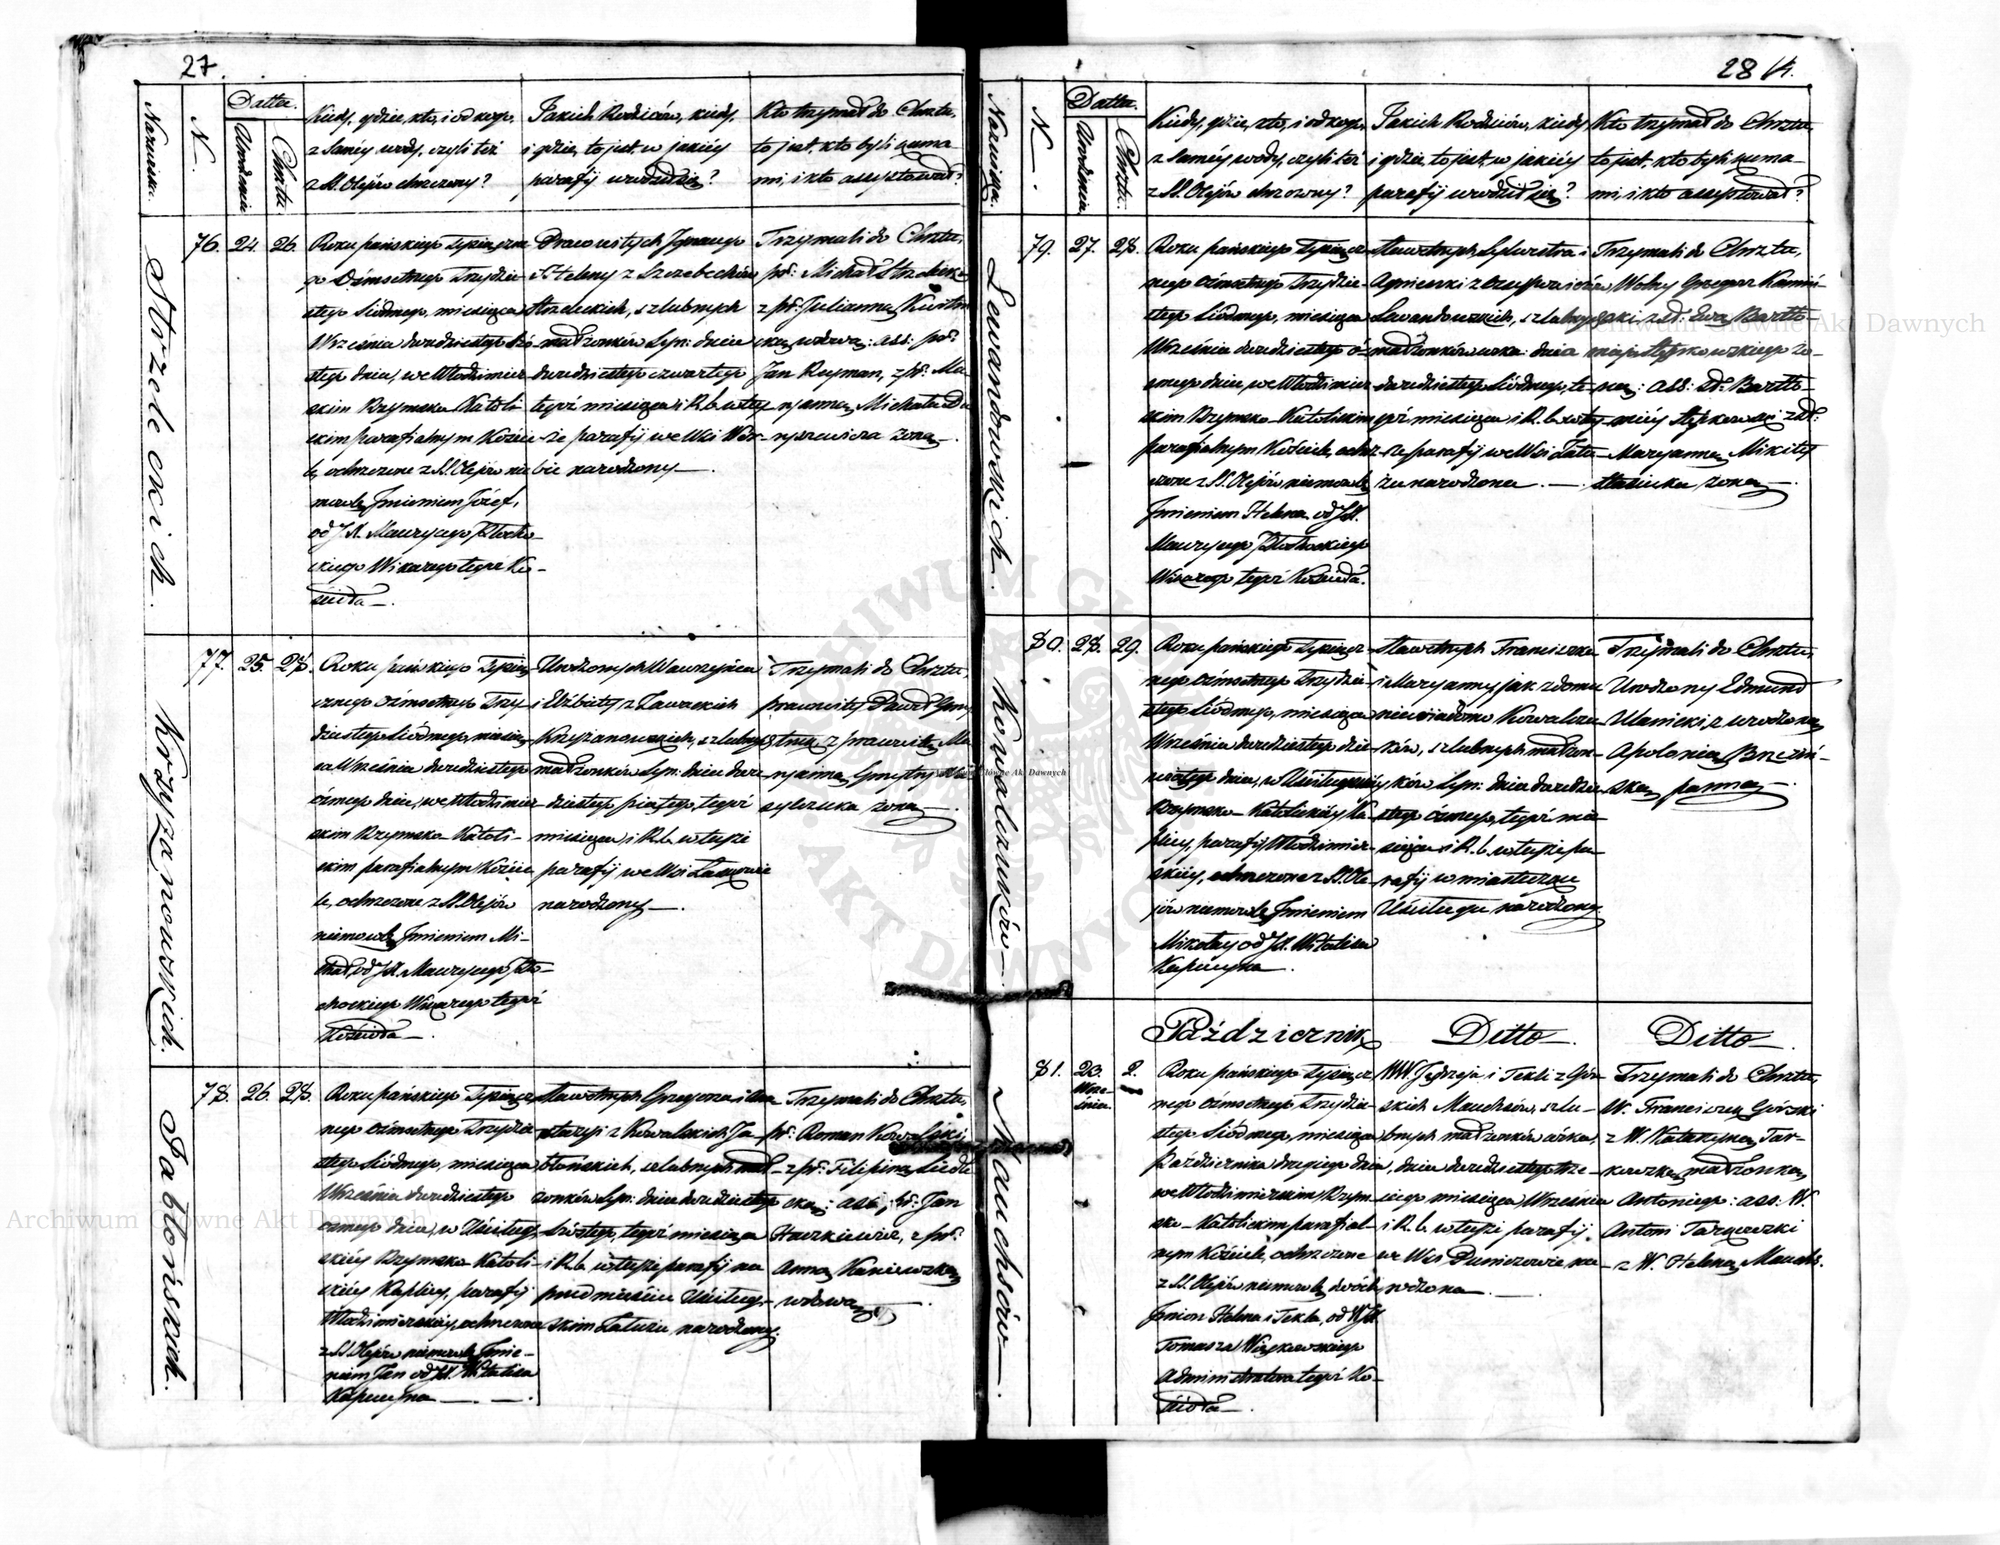 27.
Nazwiska.
N.
Datta.
Urodzenia
Chrztu
Kiedy, gdzie, kto, i od kogo,
z Samey wody, czyli też
z SS. Olejów chrzczony?
Jakich Rodziców, kiedy,
i gdzie, to jest, w jakiéy
parafij urodził się?
Kto trzymał do Chrztu,
to jest, kto byli kuma-
mi, i kto assystował?
Strzeleckich.
76. 24. 26.
Roku pańskiego Tysiączne
go Ośmsetnego Trzydzie
stego Siódmego, miesiąca
Września dwudziestego szó-
stego dnia, we Włodzimier
skim Rzymsko Katoli
ckim parafialnym Koście
le, ochrzczone z SS. Olejów nie
mowlę Jmieniem Józef,
od J.X. Maurycego Płocho-
ckiego Wikarego tegoż Ko-
ścioła.
Pracowitych Jgnacego
i Heleny z Szczebechów
Strzeleckich, szlubnych
małżonków Syn: dnia
dwudziestego czwartego
tegoż miesiąca i R. b. w tey
że parafij we Wsi Wér-
bie narodzony.
Trzymali do Chrztu,
pr: Michał Strzelecki
z pr: Julianną
wdową: ass: pr:
Jan Rujman, z pr: Ma-
ryanną Michała
żoną.
Krzyżanowskich.
77. 25. 28.
Roku pańskiego Tysią
cznego Ośmsetnego Trzy
dziestego Siódmego, miesią
ca Września dwudziestego
ósmego dnia, we Włodzimier
skim Rzymsko Katoli-
ckim parafialnym Koście
le, ochrzczone z SS. Olejów
niemowlę Jmieniem Mi-
chał, od J.X. Maurycego Pło-
chockiego Wikarego tegoż
Kościoła.
Urodzonych Wawrzyńca
i Elżbiety z Zawackich
Krzyżanowskich, szlubnych
małżonków Syn: dnia dwu-
dziestego piątego, tegoż
miesiąca i R. b. w teyże
parafij we Wsi
narodzony.
Trzymali do Chrztu,
pracowity Paweł
z pracowitą Ma-
ryanną
żoną.
Jabłońskich.
78. 26. 28.
Roku pańskiego Tysiącz
nego Ośmsetnego Trzydzie
stego Siódmego, miesiąca
Września dwudziestego
osmego dnia, w Uściług
skiéy Rzymsko Katoli-
ckiéy Kaplicy, parafij
Włodzimierskiéy, ochrzczone
z SS. Olejów niemowlę Jmie-
niem Jan od J.X. Witalisa
Kapucyna.
Sławetnych Grzegorza i Ana
stazyi z Kowalskich Ja
błońskich, szlubnych mał-
żonków Syn: dnia dwudziestego
szóstego, tegoż miesiąca
i R. b. w teyże parafij na
przedmieściu Uściług-
skim Załużu narodzony.
Trzymali do Chrztu,
pr: Roman Kowalski
z pr: Filipiną
ass: pr: Jan
Hackiewicz, z pr:
Anną Kaniewską
wdową.
28
Nazwiska.
N.
Datta.
Urodzenia
Chrztu.
Kiedy, gdzie, kto, i od kogo,
z Saméy wody, czyli też
z SS. Olejów chrzczony?
Jakich Rodziców, kiedy
i gdzie, to jest, w jakiéy
parafij urodził się?
Kto trzymał do Chrztu,
to jest, kto byli kuma-
mi, i kto assystował?
Lewandowskich.
79. 27. 28.
Roku pańskiego Tysiącz
nego Ośmsetnego Trzydzie-
stego Siódmego, miesiąca
Września dwudziestego ó-
smego dnia, we Włodzimier
skim Rzymsko Katolickim
parafialnym Kościele, ochrz
czone z SS. Olejów niemowlę
Jmieniem Helena od J.X.
Maurycego Płochockiego
Wikarego tegoż Kościoła.
Sławetnych Sylwestra i
Agnieszki z
Lewandowskich, szlubnych
małżonków córka: dnia
dwudziestego Siódmego, te-
goż miesiąca i R. b. w tey
że parafij we Wsi Zału-
żu narodzona.
Trzymali do Chrztu,
Wolny Grzegorz Kamiń-
ski z sł: Ewą Bartło-
mieja Stępkowskiego żo-
ną: ass: sł. Bartło-
miéy Stępkowski z sł:
Maryanną Mikity
żoną.
Kowalczuków
80. 28. 29.
Roku pańskiego Tysiącz
nego Ośmsetnego Trzydzie
stego Siódmego, miesiąca
Września dwudziestego dzie-
wiątego dnia, w Uściługskiéy
Rzymsko Katolickiéy Ka
plicy, parafij Włodzimier-
skiéy, ochrzczone z SS. Ole-
jów niemowlę Jmieniem
Mikołay od J.X. Witalisa
Kapucyna.
Sławetnych Franciszka
i Maryanny jak z domu
niewiadomo Kowalczu
ków, szlubnych małżon-
ków Syn: dnia dwudzie
stego ósmego, tegoż mie-
siąca i R. b. w teyże pa-
rafij w miasteczku
Uściługu narodzony.
Trzymali do Chrztu,
Urodzony Edmund
Ulanicki, z urodzoną
Apolonią Brzeziń-
ską panną.
Październik
Ditto.
Ditto.
Mauchsów
81. 20. 2.
Wrze-
śnia.
Roku pańskiego Tysiącz
nego Ośmsetnego Trzydzie-
stego Siódmego, miesiąca
Października drugiego dnia,
we Włodzimierskim Rzym-
sko-Katolickim parafial-
nym Kościele, ochrzczone
z SS. Olejów niemowlę dwóch
Jmion Helena i Tekla, od W.X.
Tomasza
Administratora tegoż Ko-
ścioła.
WW. Jędrzeja i Tekli z Gór-
skich Mauchsów, szlu-
bnych małżonków córka,
dnia dwudziestego
miesiąca Września
i R. b. w teyże parafij,
we Wsi na-
rodzona.
Trzymali do Chrztu,
W. Franciszek Górski
z W. Katarzyną Tar-
małżonką
Antoniego: ass: W.
Antoni
z W. Heleną Mauchs.
Archiwum Główne Akt Dawnych
Archiwum Główne Akt Dawnych
Archiwum Główne Akt Dawnych
ARCHIWUM GŁÓWNE AKT DAWNYCH